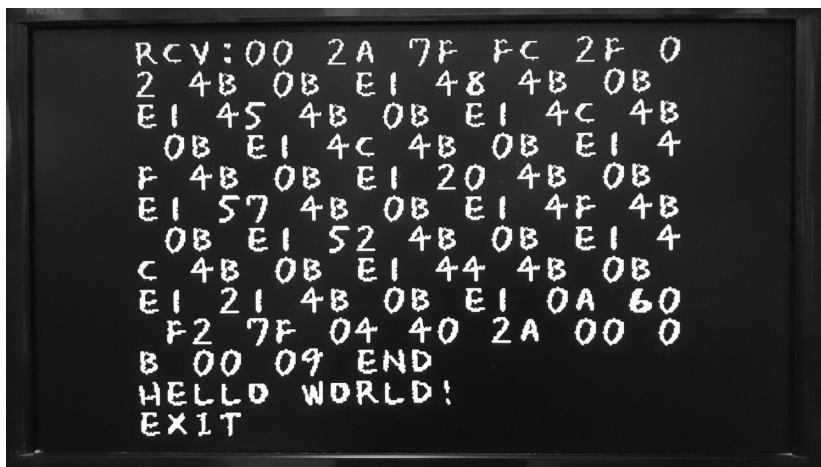 RCV:00 2A 7F FC 2F 0
2 4B 0B E1 48 4B 0B
E1 45 4B 0B E1 4C 4B
0B E1 4C 4B 0B E1 4
F 4B 0B E1 20 4B 0B
E1 57 4B 0B E1 4F 4B
0B E1 52 4B 0B E1 4
C 4B 0B E1 44 4B 0B
E1 21 4B 0B E1 0A 60
F2 7F 04 40 2A 00 0
B 00 09 END
HELLO WORLD!
EXIT